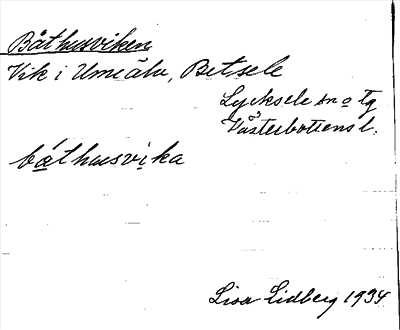 Båthusviken
Vik i Umeälv, Betsele
Lycksele sn o tg
Västerbottens l.
båthusvika
Lisa Lidberg 1934